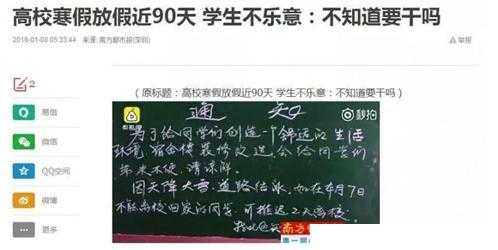 高校寒假放假近90天 学生不乐意：不知道要干吗
2018-01-08 05:33:44 来源：南方都市报(深圳)
举报
2
（原标题：高校寒假放假近90天 学生不乐意：不知道要干吗）
易信
微信
QQ空间
微博
更多
秒拍
通知
为了给同学们创造一个舒适的生活
环境，宿舍楼装修改造，会给同学们
带来不便，请谅解。
因天降大雪，道路结冰，如在月7日
不能离校回家的同学，可推迟2天离校。